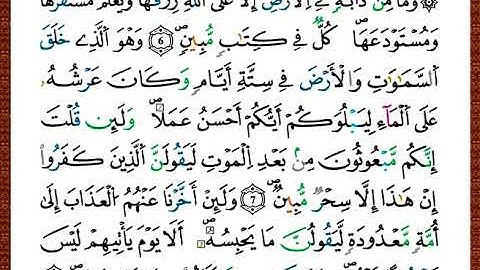 وَمَا مِن دَآبَّةٍ فِي الْأَرْضِ إِلَّا عَلَى اللَّهِ رِزْقُهَا وَيَعْلَمُ مُسْتَقَرَّهَا
وَمُسْتَوْدَعَهَا ۚ كُلٌّ فِي كِتَابٍ مُّبِينٍ ﴿6﴾ وَهُوَ الَّذِي خَلَقَ
السَّمَاوَاتِ وَالْأَرْضَ فِي سِتَّةِ أَيَّامٍ وَكَانَ عَرْشُهُ
عَلَى الْمَآءِ لِيَبْلُوَكُمْ أَيُّكُمْ أَحْسَنُ عَمَلًا ۗ وَلَئِن قُلْتَ
إِنَّكُم مَّبْعُوثُونَ مِنۢ بَعْدِ الْمَوْتِ لَيَقُولَنَّ الَّذِينَ كَفَرُوا
إِنْ هَٰذَا إِلَّا سِحْرٌ مُّبِينٌ ﴿7﴾ وَلَئِنْ أَخَّرْنَا عَنْهُمُ الْعَذَابَ إِلَىٰ
أُمَّةٍ مَّعْدُودَةٍ لَّيَقُولُنَّ مَا يَحْبِسُهُ ۗ أَلَا يَوْمَ يَأْتِيهِمْ لَيْسَ